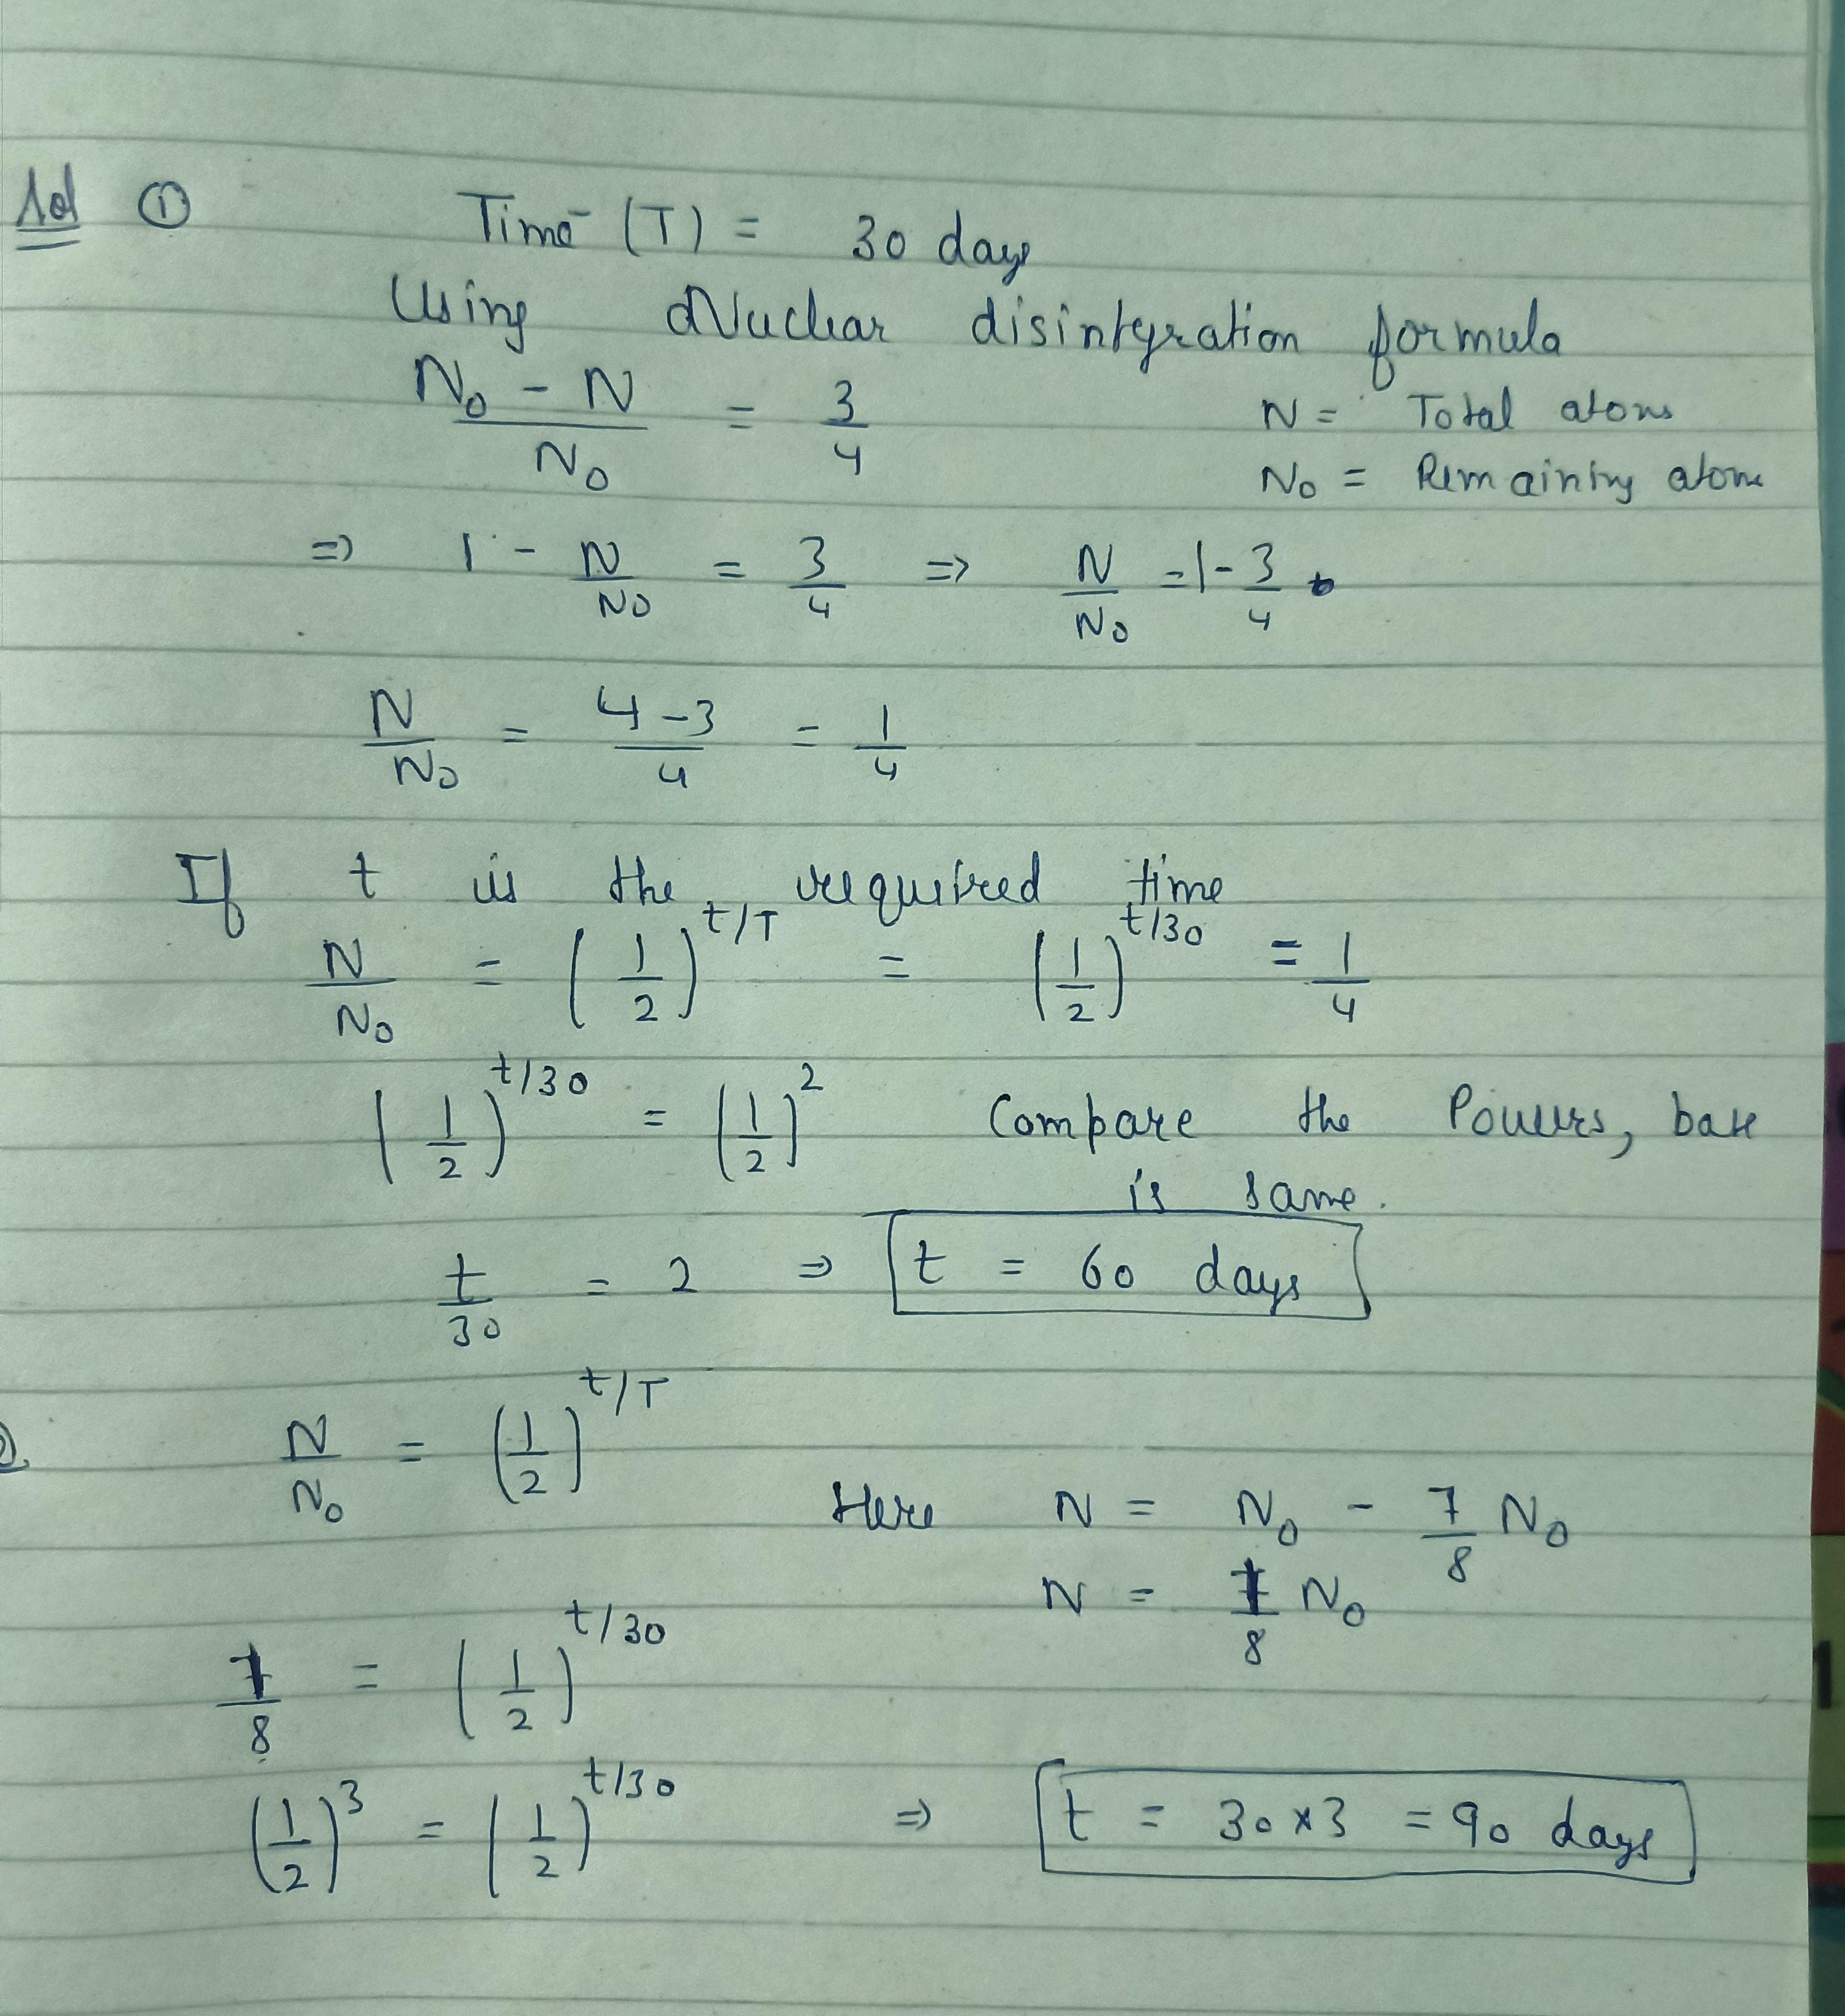 Sol ① Time (T) = 30 days
Using Nuclear disintegration formula
N₀ - N / N₀ = 3/4 N = Total atoms
N₀ = Remaining atoms
=> 1 - N/N₀ = 3/4 => N/N₀ = 1 - 3/4
N/N₀ = 4-3/4 = 1/4
If t is the required time
N/N₀ = (1/2)^t/T = (1/2)^t/30 = 1/4
(1/2)^t/30 = (1/2)^2 Compare the Powers, base
is same.
t/30 = 2 => t = 60 days
N/N₀ = (1/2)^t/T
Here N = N₀ - 7/8 N₀
N = 1/8 N₀
1/8 = (1/2)^t/30
(1/2)^3 = (1/2)^t/30 => t = 30×3 = 90 days